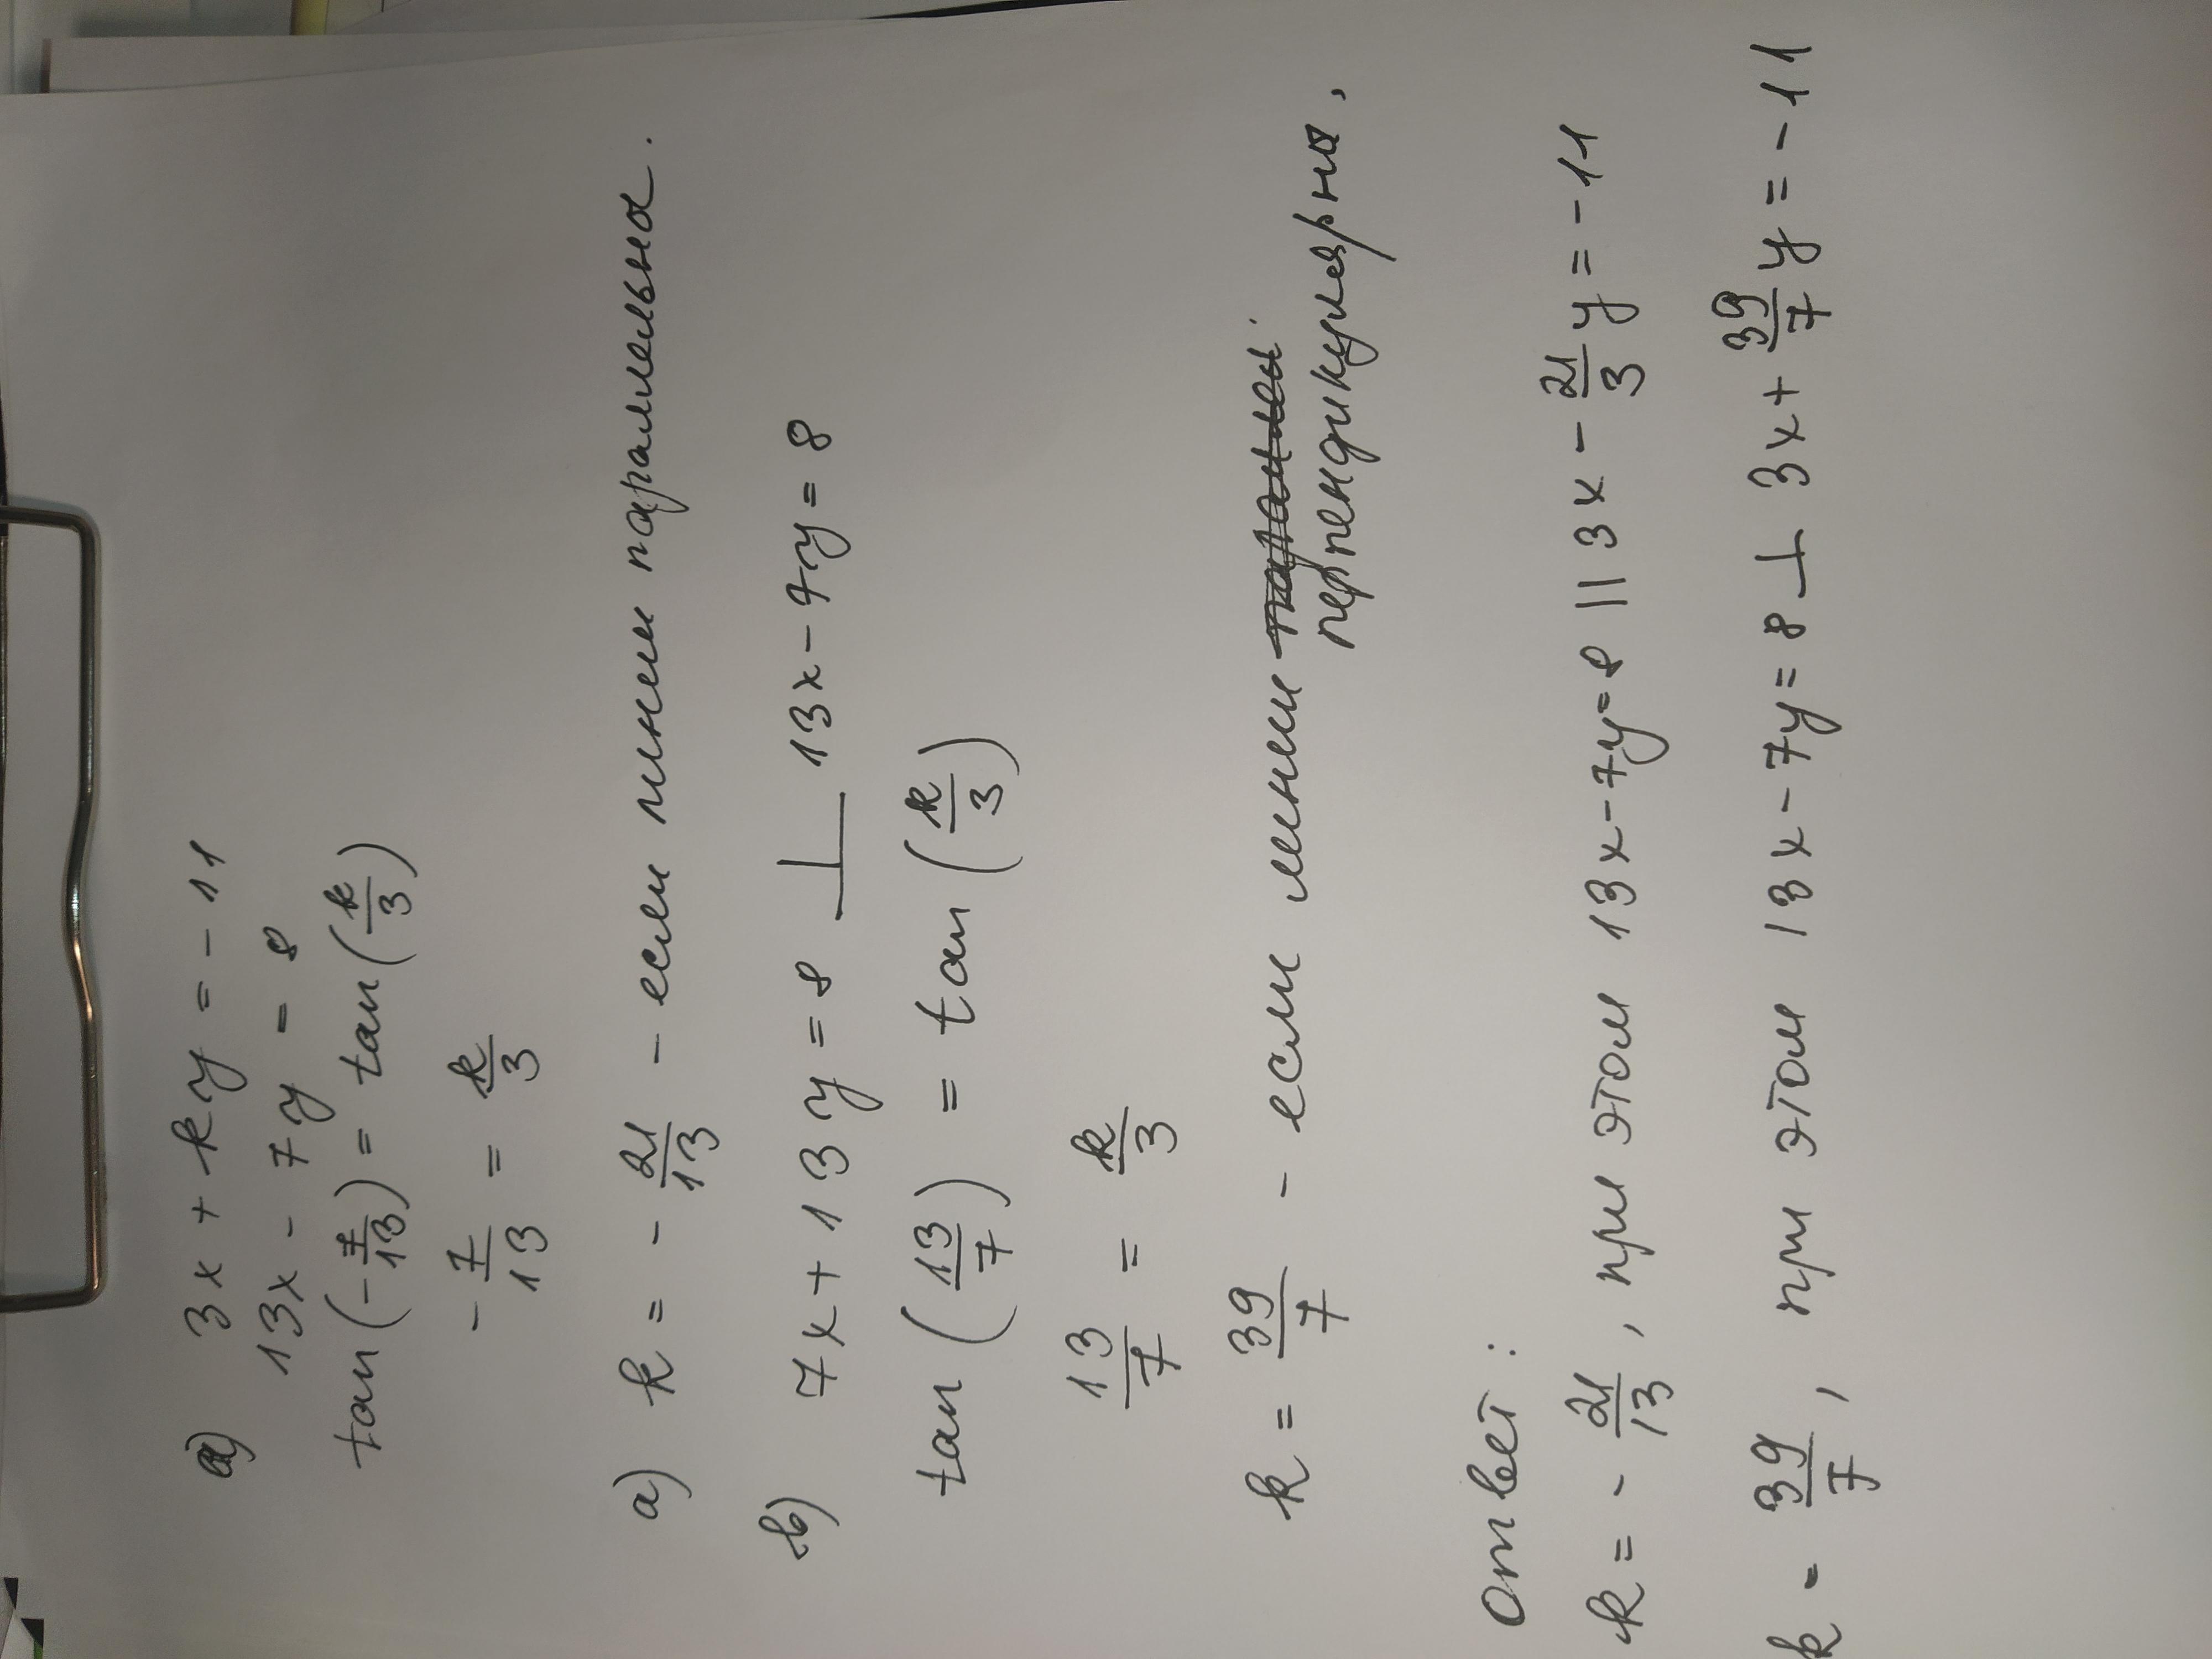 a) 3x + ky = -11
13x - 7y = 8
tan(-7/13) = tan(k/3)
-7/13 = k/3
a) k = -21/13 - если линии паралельна.
в) 7x + 13y = 8 ⊥ 13x - 7y = 8
tan(13/7) = tan(k/3)
13/7 = k/3
k = 39/7 - если линии
перпендикулярна,
Ответ:
k = -21/13, при этом 13x-7y=8 || 3x - 21/3 y = -11
k = 39/7, при этом 13x-7y=8 ⊥ 3x + 39/7 y = -11